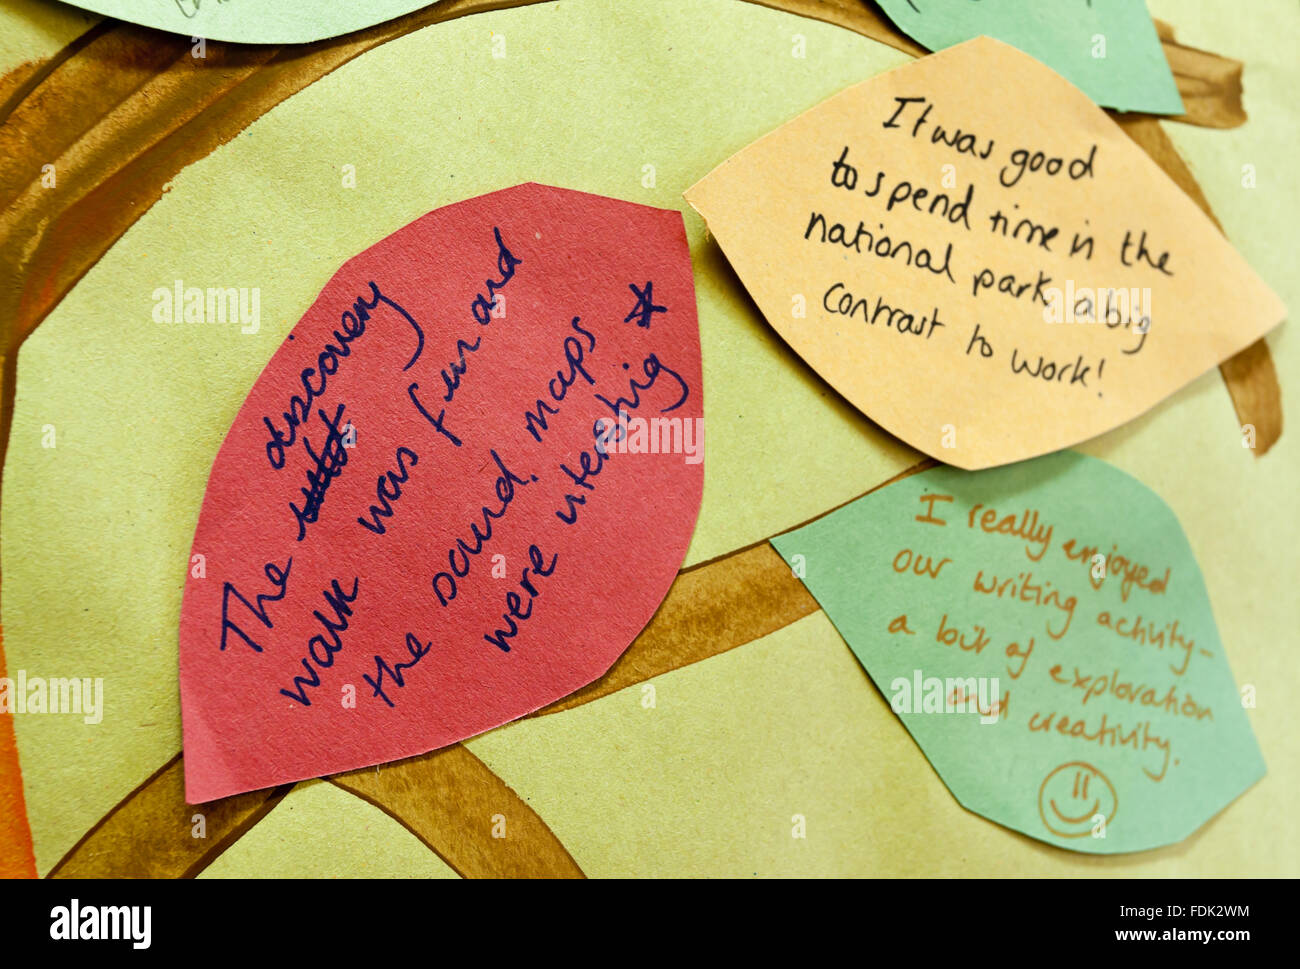 The discovery
walk was fun and
the sound maps ☆
were interesting
It was good
to spend time in the
national park a big
contrast to work!
I really enjoyed
our writing activity –
a bit of exploration
and creativity.
alamy
Image ID: FD2K2WM
www.alamy.com